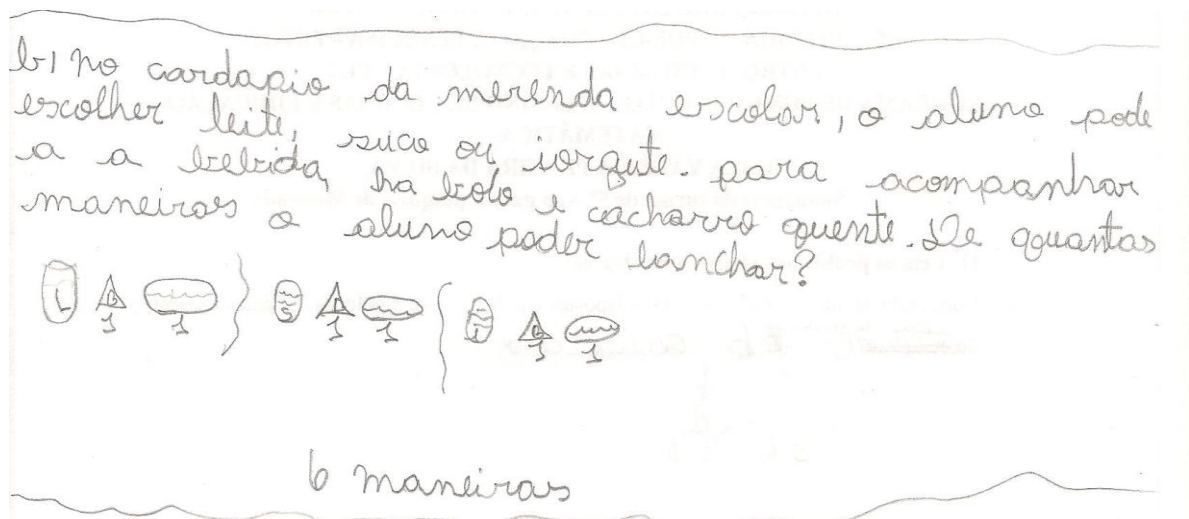 b) no cardapio da merenda escolar, o aluno pode
escolher leite, suco ou iorgute. para acompanhar
a a bebida, ha bolo e cachorro quente. De qquantas
maneiras o aluno poder lanchar?
L B 1 1 S B 1 1 I B 1 1
6 maneiras